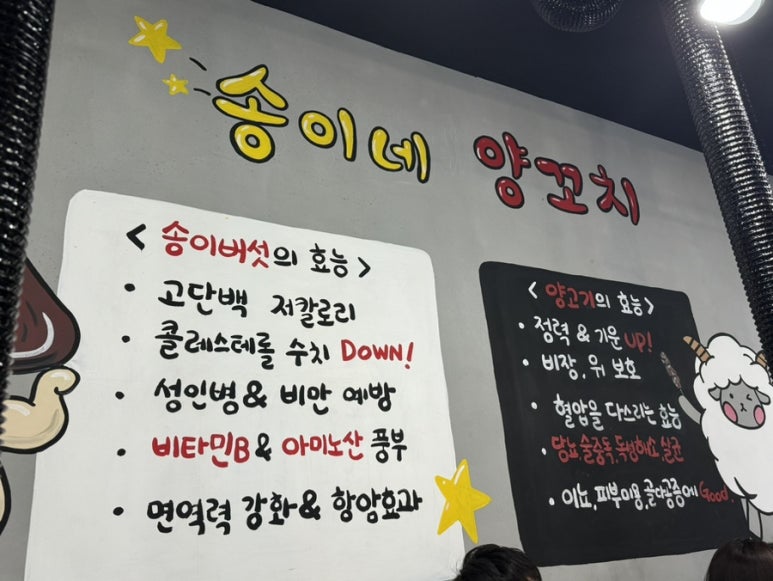 송이네 양꼬치
< 송이버섯의 효능 >
• 고단백 저칼로리
• 콜레스테롤 수치 DOWN!
• 성인병 & 비만 예방
• 비타민B & 아미노산 풍부
• 면역력 강화 & 항암효과
< 양고기의 효능 >
• 정력 & 기운 UP!
• 비장, 위 보호
• 혈압을 다스리는 효능
• 당뇨, 술중독, 독성해소, 살균
• 이뇨, 피부미용, 골다공증에 Good.